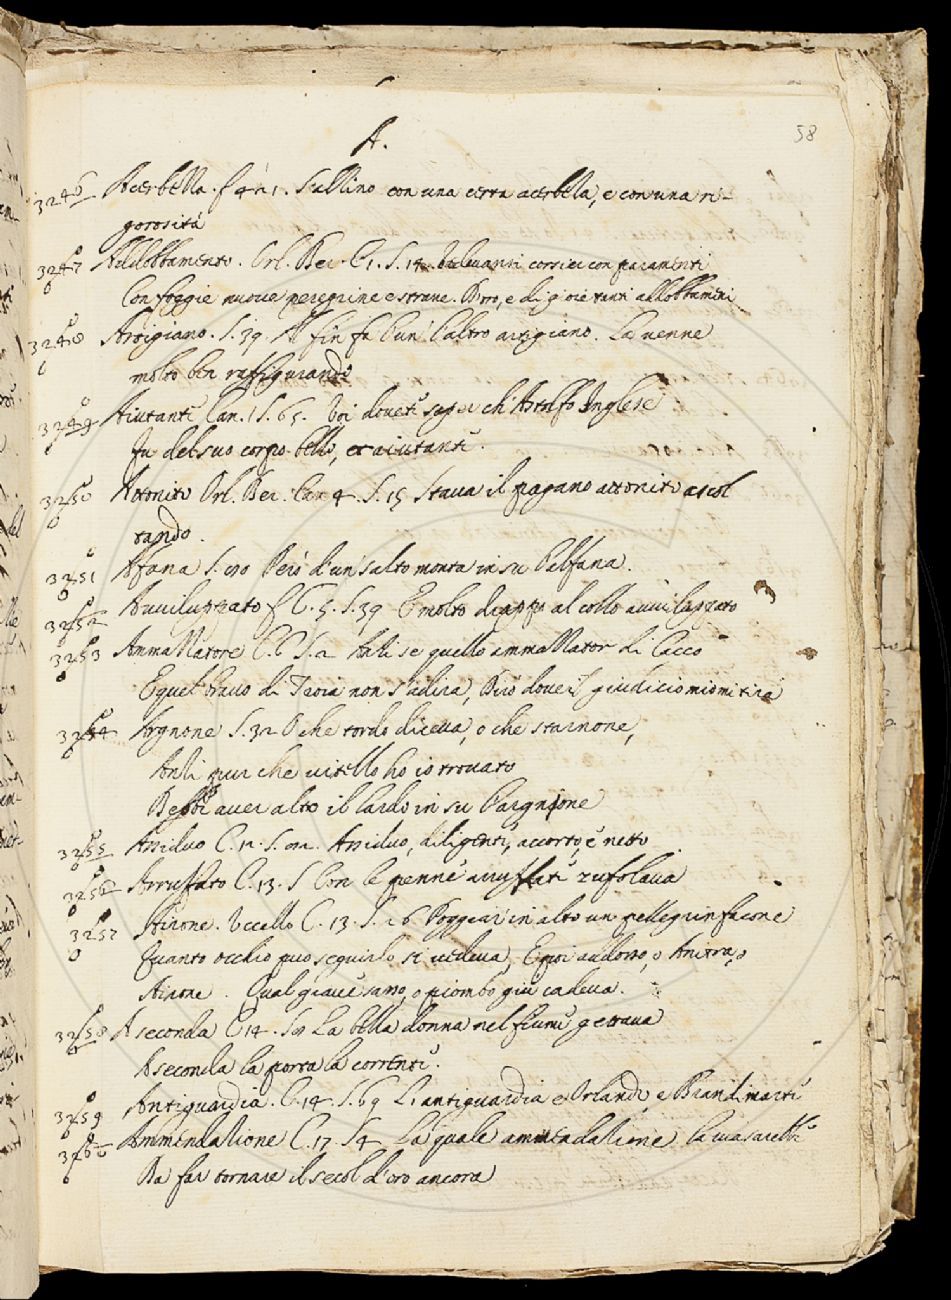 58
A.
3246 Acerbella. f 4 n 1. Sallino con una certa acerbella, e con una ri-
gorosità
3247 Addobbamento. Orl. Ber. C 1. S. 14. corsier con paramenti
Con foggie nuove peregrine e strane. D'oro, e di gioie tanti addobbamenti
3248 Artigiano. S. 39. Al fin fa l'un l'altro artigiano. La venne
molto ben raffigurando
3249 Aiutanti Can. 1 S. 65. Voi dovete saper ch'Astolfo Inglese
Fu del suo corpo bello, et aiutante.
3250 Attonito Orl. Ber. Can 4. S. 15 Stava il pagano attonito ascol
tando.
3251 Afana S. Però d'un salto monta in su l'alfana.
3252 Avviluppato C. 5. S. 39 E molto drappo al collo avviluppato
3253 Ammazzatore C. 6 S. 2 Anzi se quello ammazzator di Cacco
E quel bravo di Troia non s'adira, Dirò dove il giudicio mio mi tira
3254 Argnone S. 32 O che tordo diceva, o che starnone,
Anzi pur che vitello ho io trovato
Debbi aver alto il lardo in su l'argnione
3255 Assiduo C. 12. S. Assiduo, diligente, accorto, e netto
3256 Arruffato C. 13. S Con le penne arruffate zufolava
3257 Airone. Uccello C. 13. S. 26 Poggiar in alto un pellegrin falcone
Quanto occhio può seguirlo si vedeva, E poi addosso, o Anitra, o
Airone. Qual grave sasso, o piombo giù cadeva.
3258 A seconda C 14. La bella donna nel fiume gettava
A seconda la porta la corrente.
3259 Antiguardia. C. 14. S. 69 L'antiguardia e Orlando, e Brandimarte
3260 Ammendazione C. 17. S 4 La quale ammendazione
Da far tornare il secol d'oro ancora